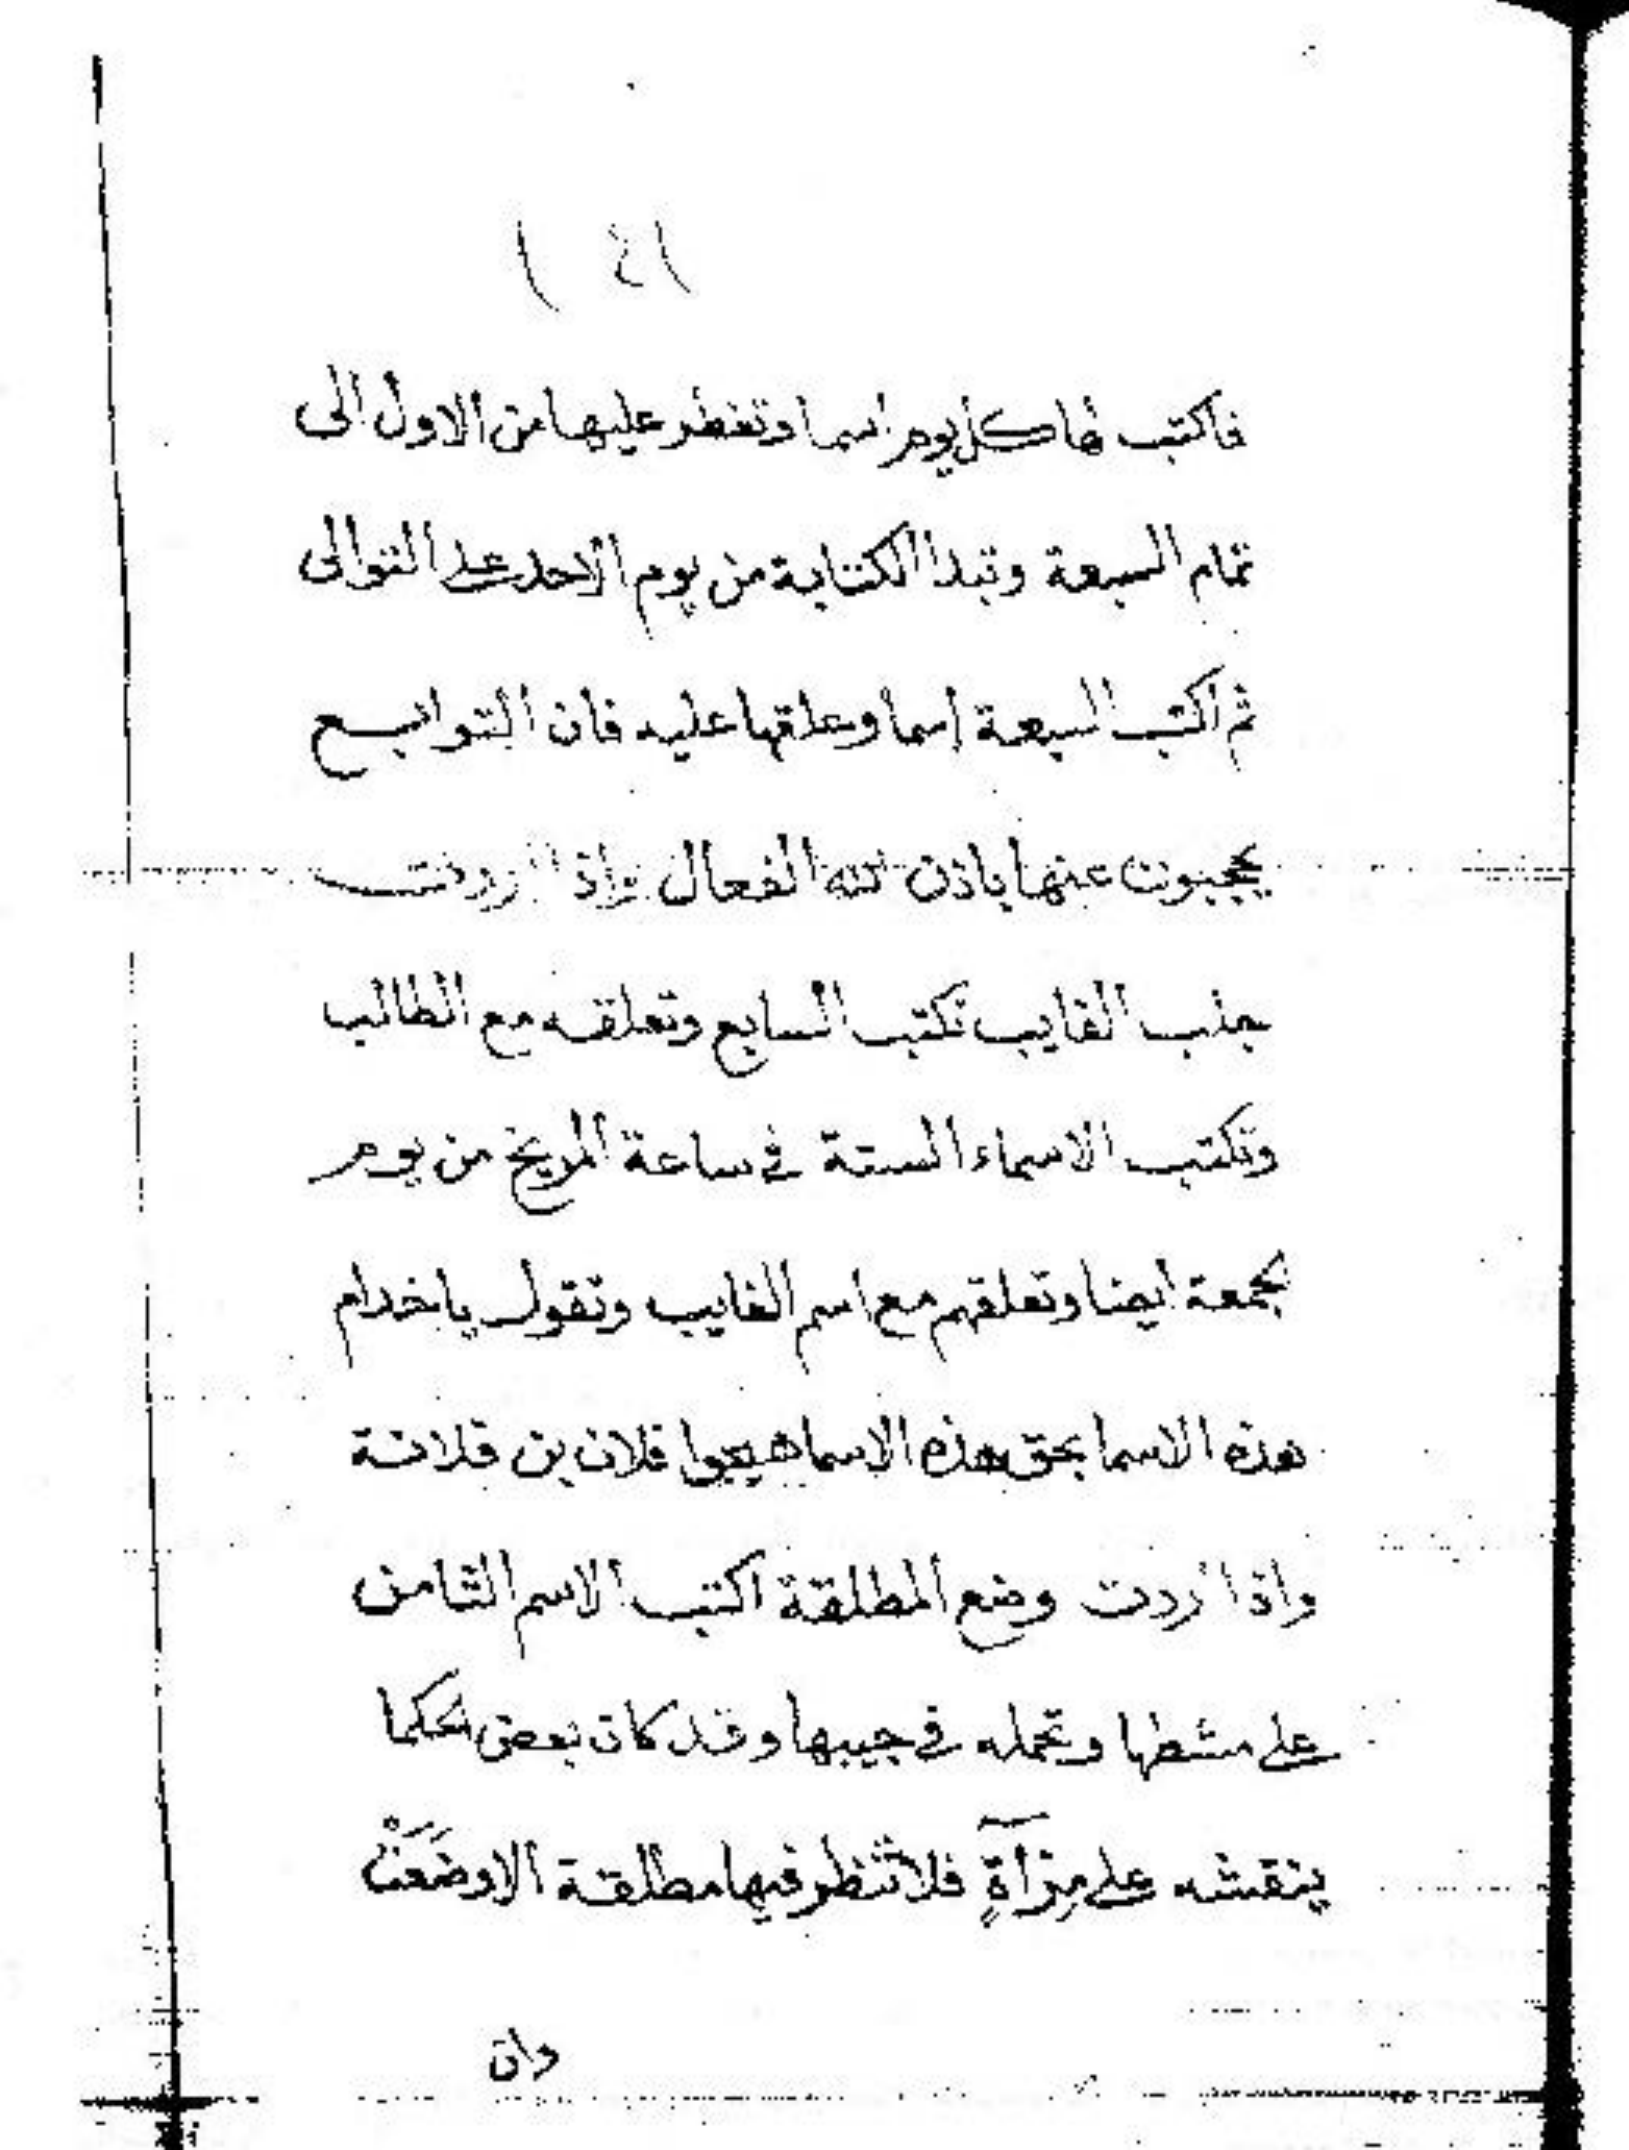 ١٤١
فاكتب لها كل يوم اسما وتفطر عليها من الاول الى
تمام السبعة وتبدا الكتابة من يوم الاحد على التوالى
ثم اكتب السبعة اسما وعلقها عليه فان التوابع
يجيبون عنها باذن الله الفعال واذا اردت
جلب الغايب تكتب السابع وتعلقه مع الطالب
وتكتب الاسماء الستة في ساعة المريخ من يوم
جمعة ايضا وتعلقهم مع اسم الغايب وتقول ياخدام
هذه الاسما بحق هذه الاسما هيجوا فلان بن فلانة
واذا اردت وضع المطلقة اكتب الاسم الثامن
على مشطها وتحمله في جيبها وقد كان بعض الحكما
ينقشه على مِرْآةٍ فلا تنظر فيها مطلقة الا وضَعَتْ
وان